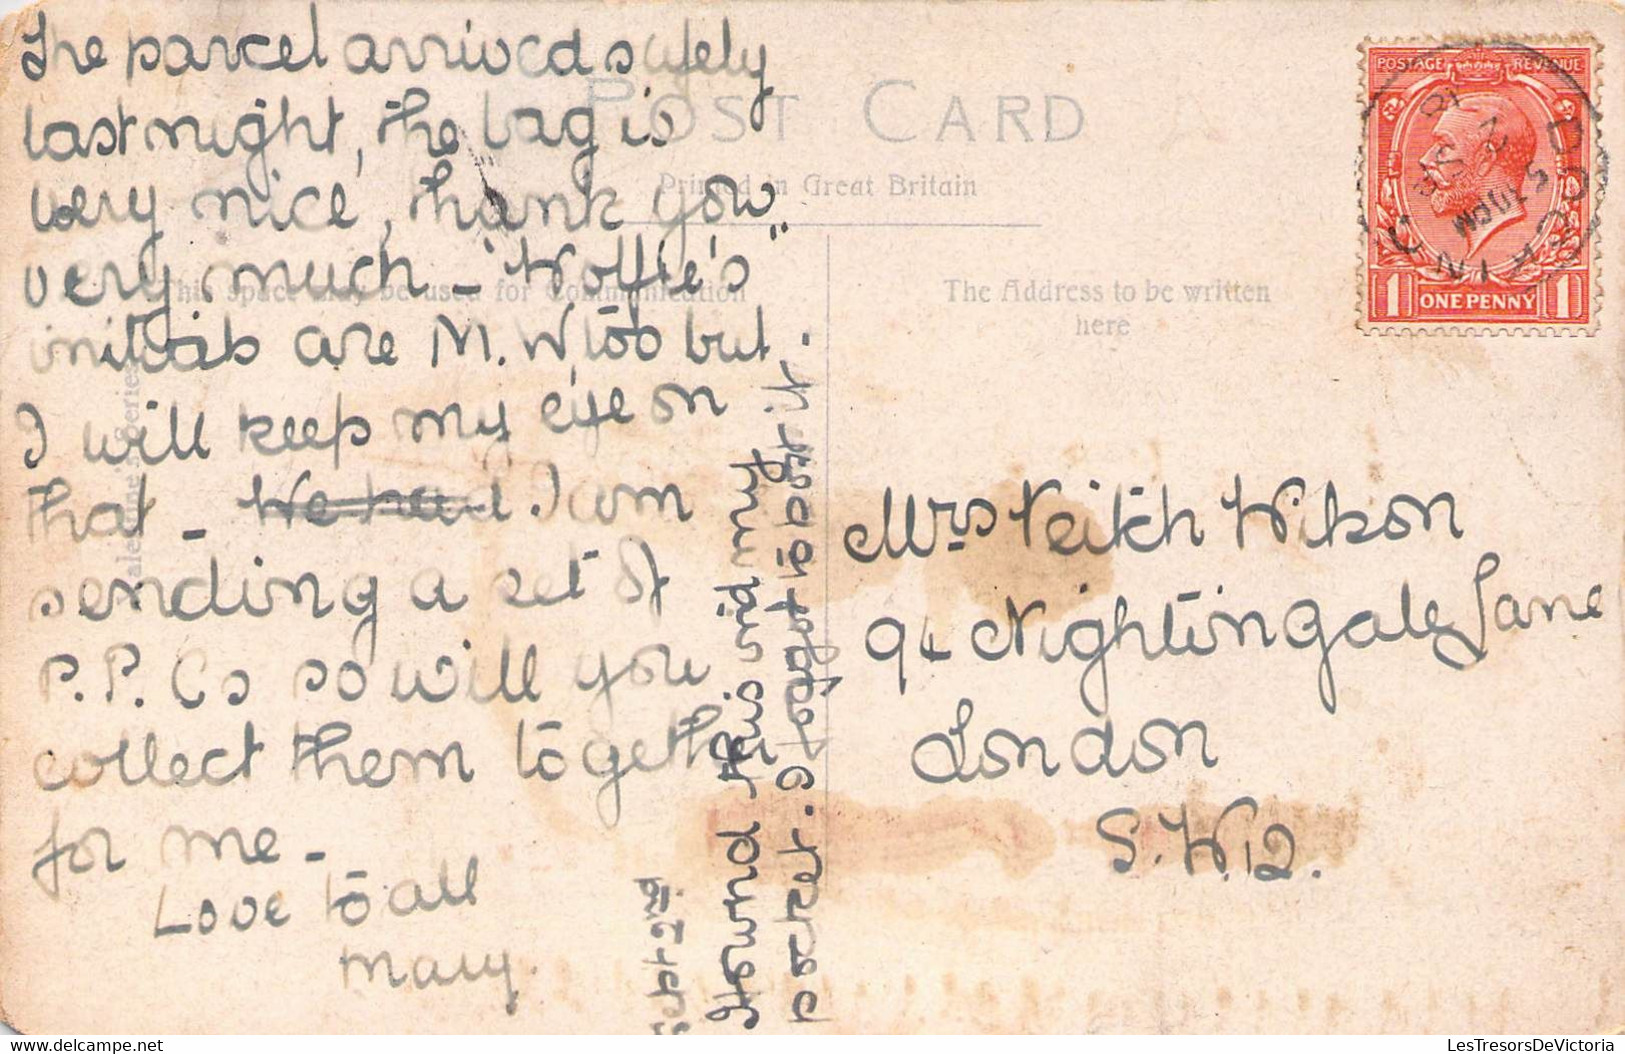 The parcel arrived safely
last night, the bag is
very nice, thank you
very much – "Wolfie's"
initials are M. W too but
I will keep my eye on
that – We have. I am
sending a set of
P.P.Cs so will you
collect them together
for me –
Love to all
Mary.
Sept 2nd
Found this in my
pocket. I forgot to post it.
POST CARD
Printed in Great Britain
This space may be used for Communication
The Address to be written
here
Valentine's Series
POSTAGE REVENUE
1 ONE PENNY 1
DORKING
2 SP
18
Mrs Veitch Wilson
94 Nightingale Lane
London
S.W.12.
LesTresorsDeVictoria
Visit our store here